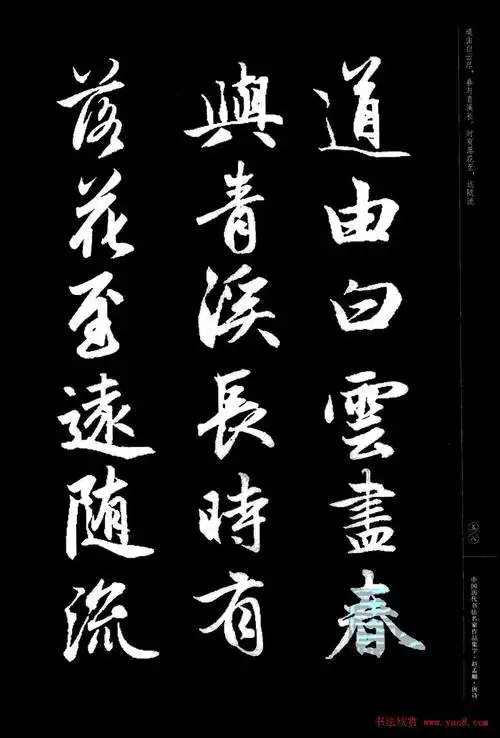 道由白雲盡春
與青溪長時有
落花至遠随流
道由白云尽，春与青溪长。时有落花至，远随流
五八
中国历代书法名家作品集字·赵孟頫·唐诗
书法欣赏 www.yac8.com